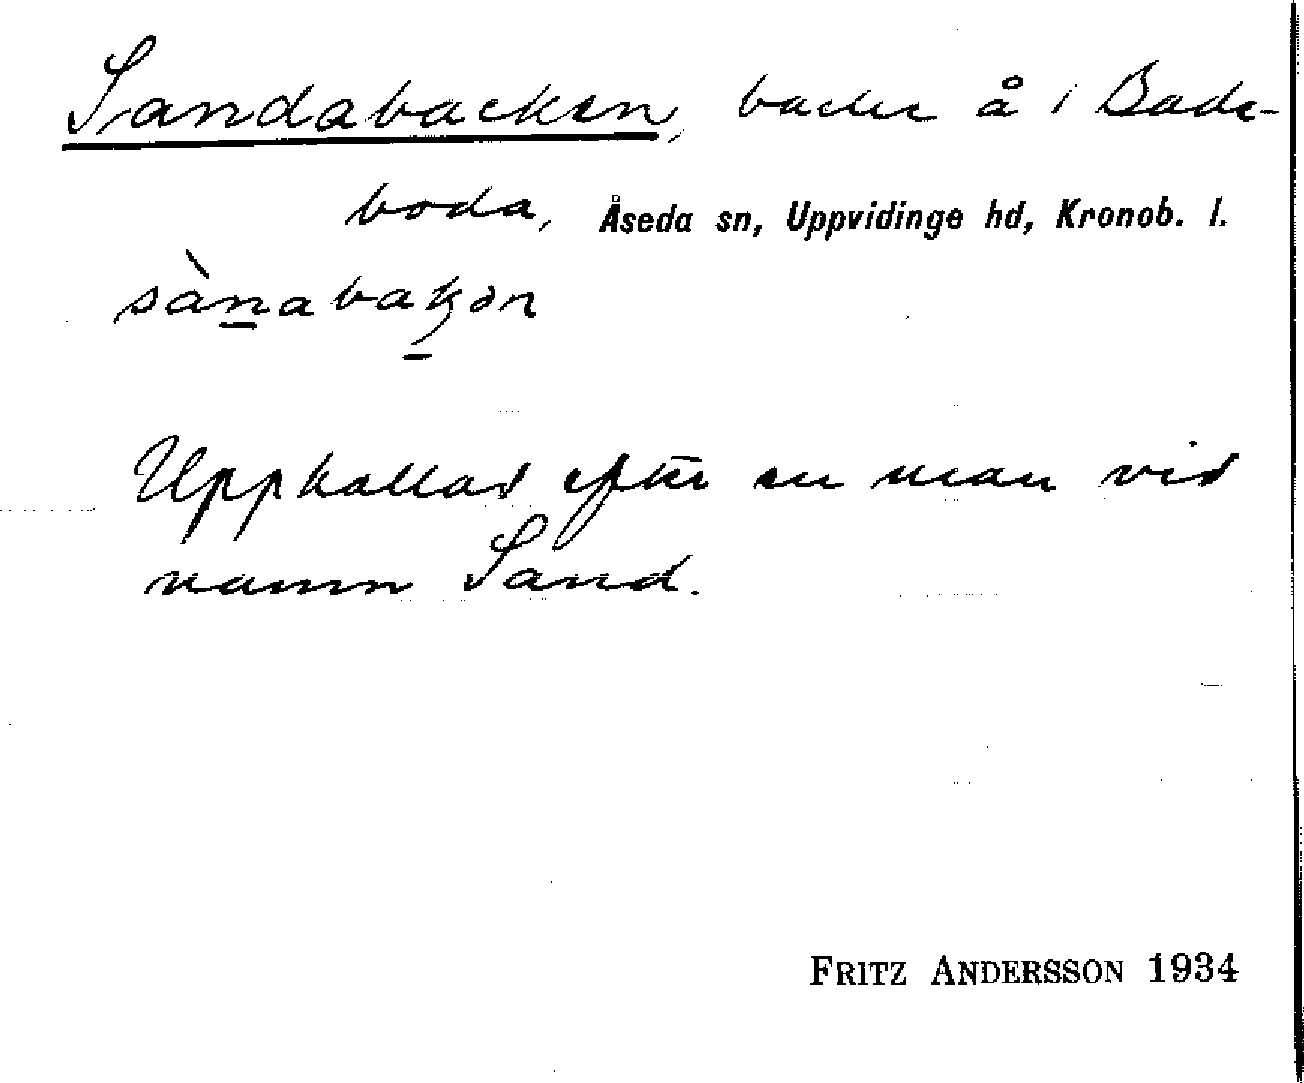 Sandabacken, backe å i Bade-
boda, Åseda sn, Uppvidinge hd, Kronob. l.
sànabakən
Uppkallad efter en man vid
namn Sand.
FRITZ ANDERSSON 1934